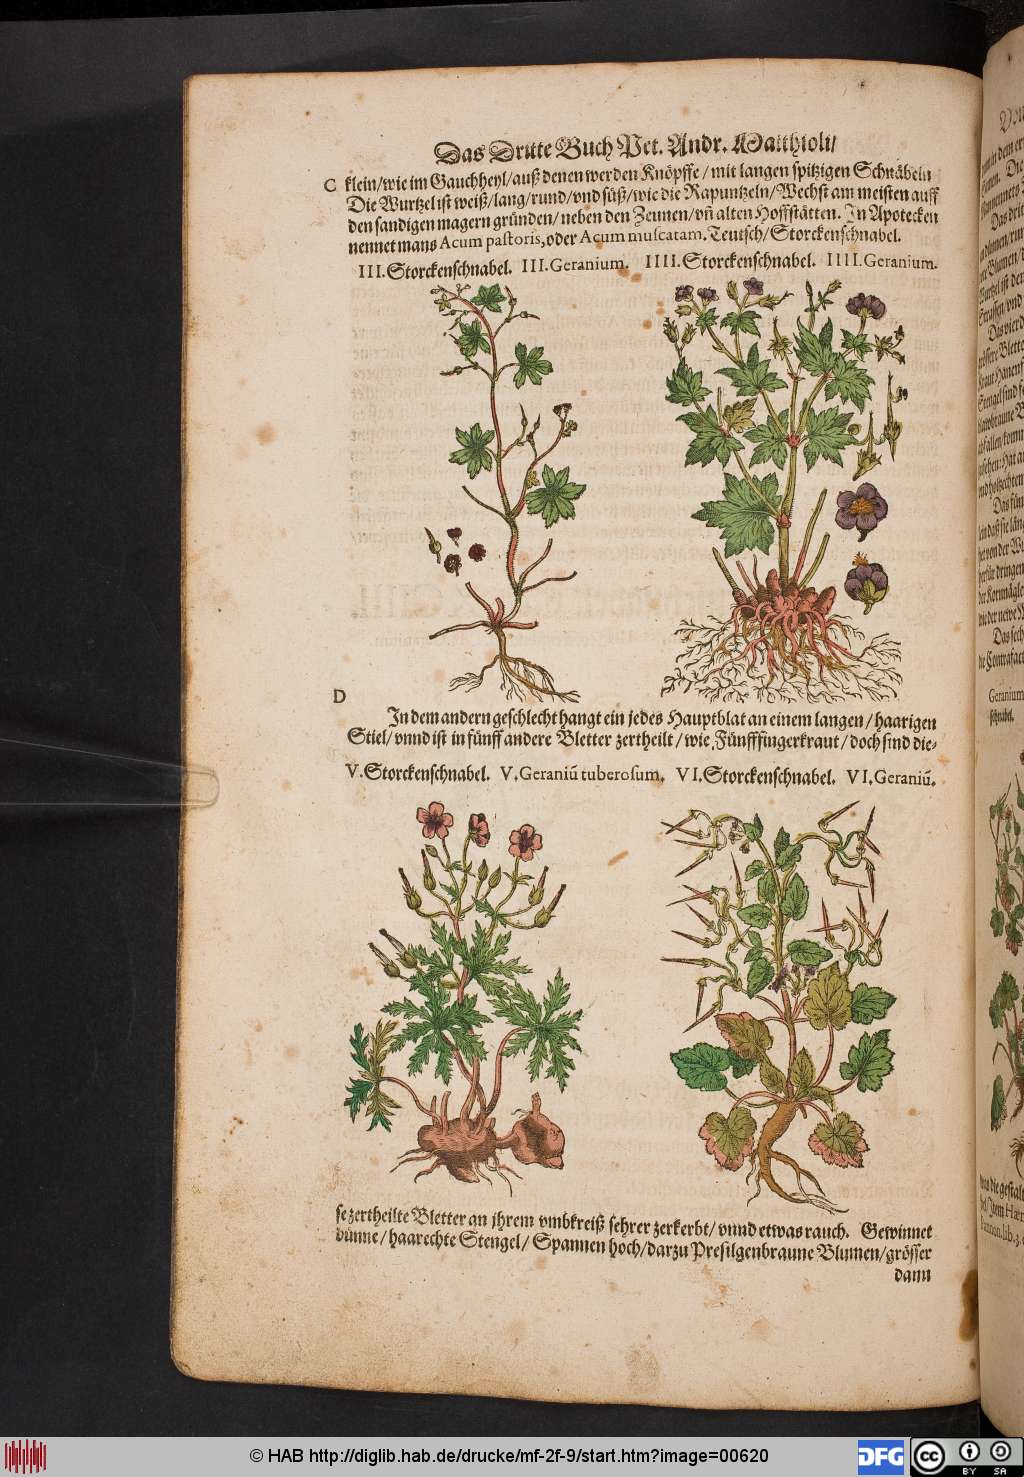 Das Dritte Buch Pet. Andr. Matthioli/
C klein/wie im Gauchheyl/auß denen werden Knöpffe/mit langen spitzigen Schnäbeln
Die Wurtzel ist weiß/lang/rund/vnd süß/wie die Rapuntzeln/Wechst am meisten auff
den sandigen magern gründen/neben den Zeunen/vñ alten Hoffstätten. In Apotecken
nennet mans Acum pastoris, oder Acum muscatam. Teutsch/Storckenschnabel.
III. Storckenschnabel. III. Geranium. IIII. Storckenschnabel. IIII. Geranium.
D
In dem andern geschlecht hangt ein jedes Hauptblat an einem langen/haarigen
Stiel/vnnd ist in fünff andere Bletter zertheilt/wie Fünfffingerkraut/doch sind die-
V. Storckenschnabel. V. Geraniũ tuberosum. VI. Storckenschnabel. VI. Geraniũ.
se zertheilte Bletter an ihrem vmbkreiß sehrer zerkerbt/vnnd etwas rauch. Gewinnet
dünne/haarechte Stengel/Spannen hoch/darzu Presilgenbraune Blumen/grösser
dann
© HAB http://diglib.hab.de/drucke/mf-2f-9/start.htm?image=00620
DFG
cc
BY SA